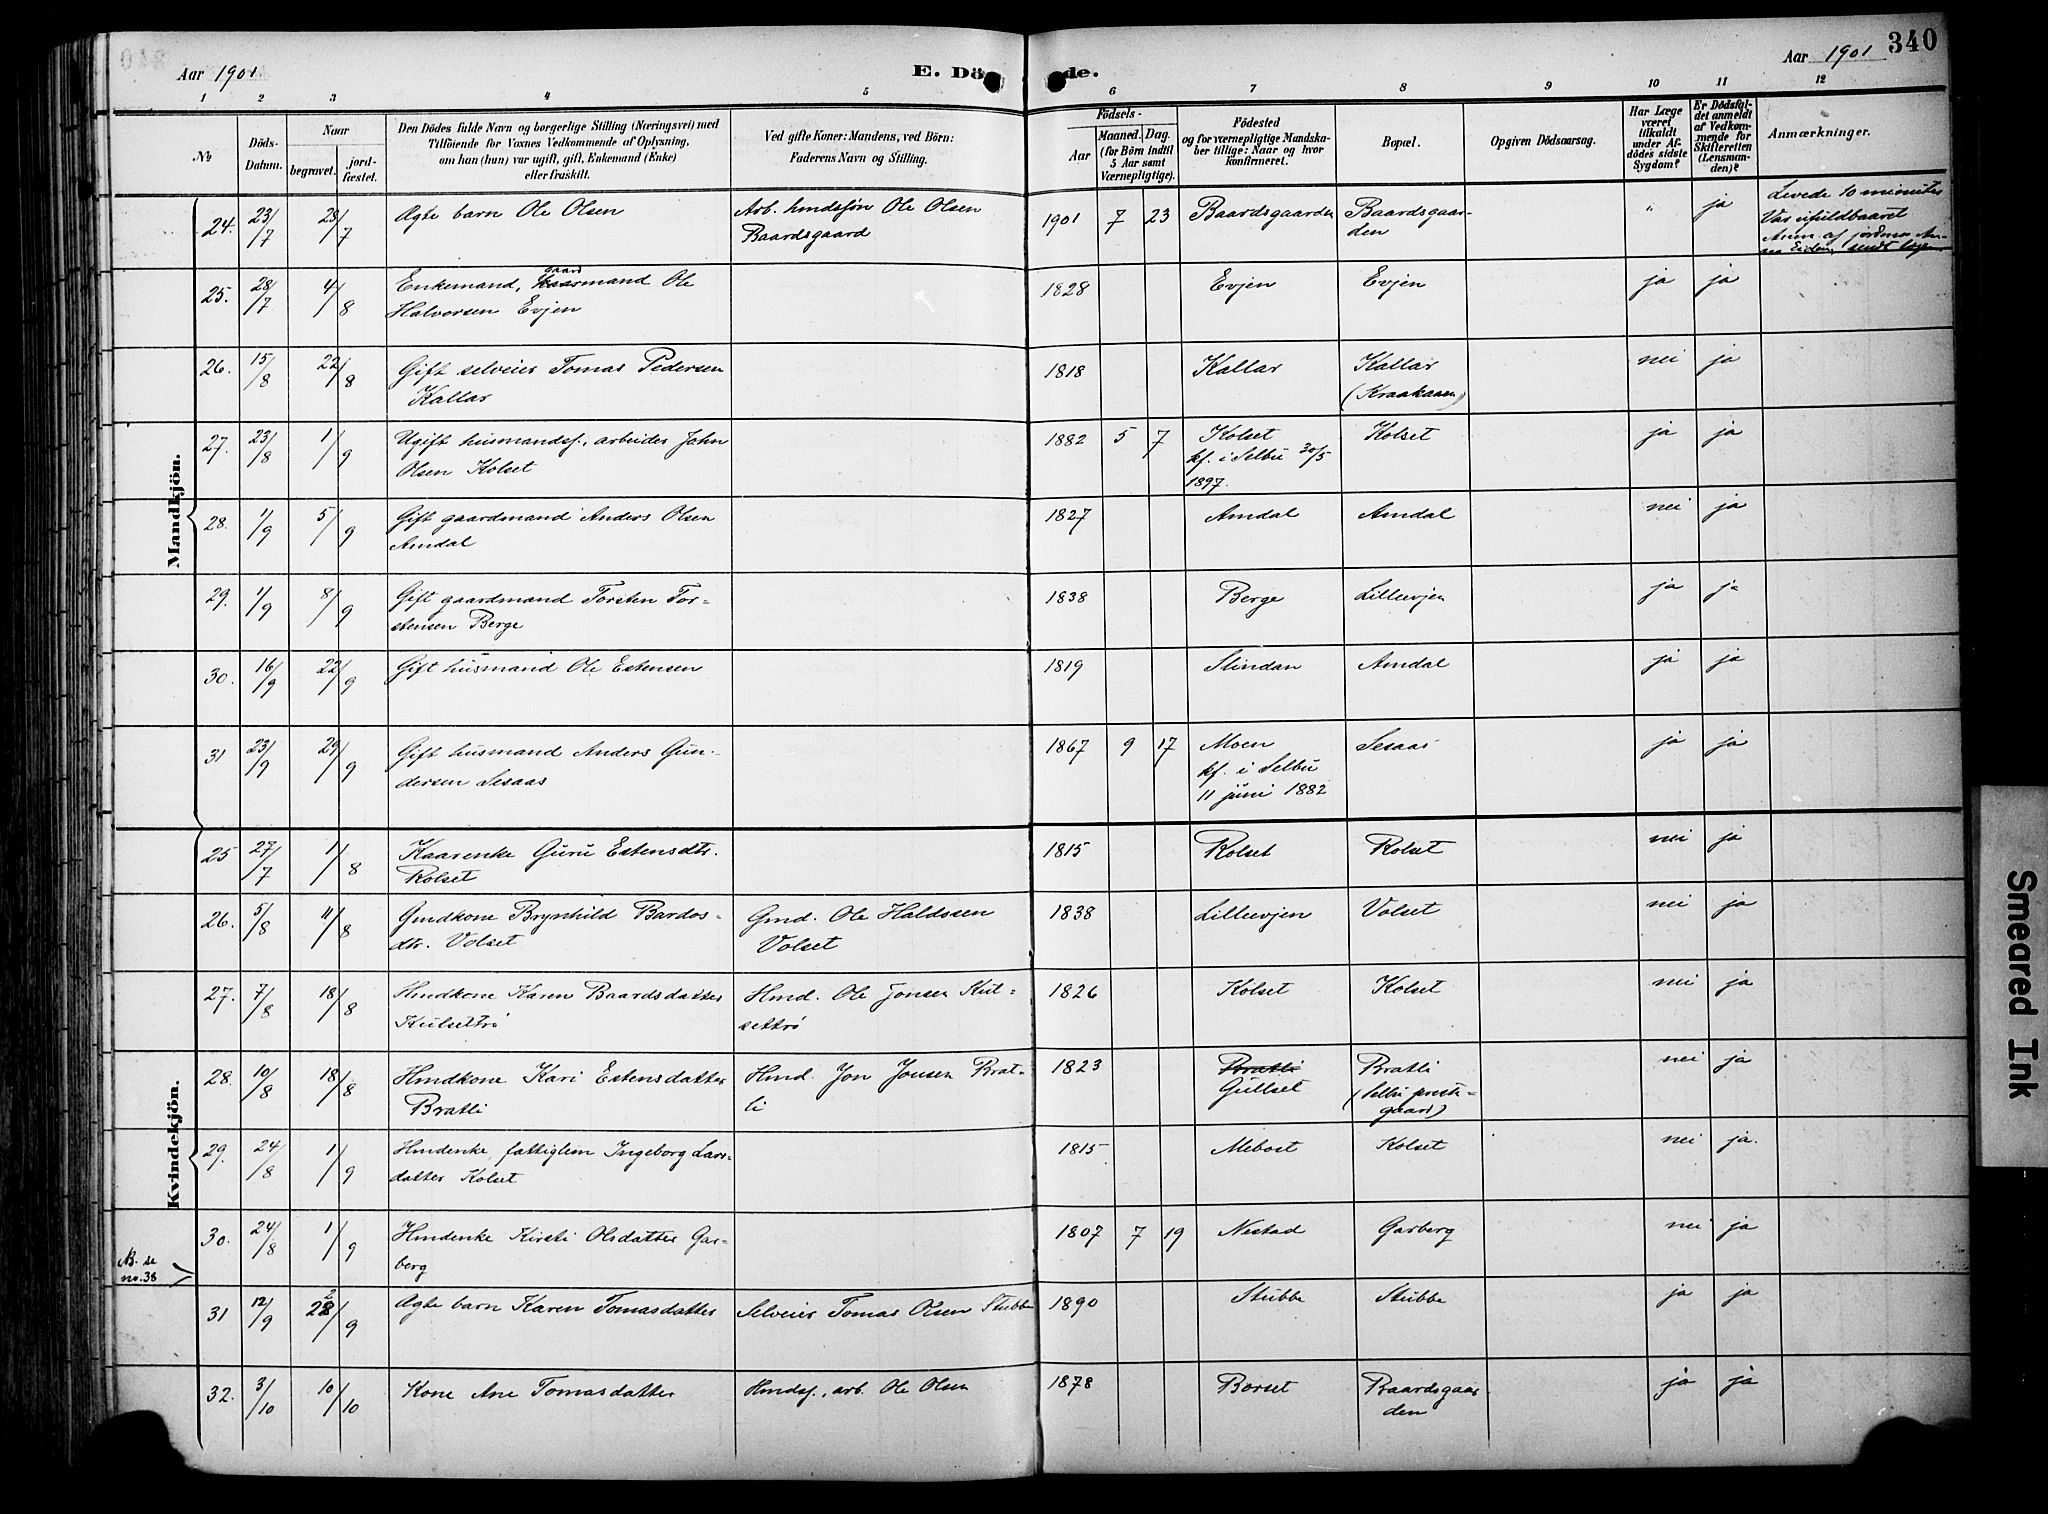 Aar 1901 E. Dö de. Aar 1901 340
1 2 3 4 5 6 7 8 9 10 11 12
No
Döds-Datum.
Naar
begravet. jord-fæstet.
Den Dödes fulde Navn og borgerlige Stilling (Næringsvei) med
Tilföiende for Voxnes Vedkommende af Oplysning,
om han (hun) var ugift, gift, Enkemand (Enke)
eller fraskilt.
Ved gifte Koner: Mandens, ved Börn:
Faderens Navn og Stilling.
Födsels-
Aar Maaned. Dag.
(for Börn indtil
5 Aar samt
Værnepligtige).
Födested
og for værnepligtige Mandska-
ber tillige: Naar og hvor
konfirmeret.
Bopæl.
Opgiven Dödsaarsag.
Har Læge
været
tilkaldt
under Af-
dödes sidste
Sygdom?
Er Dödsfal-
det anmeldt
af Vedkom-
mende for
Skifteretten
(Lensman-
den)?
Anmærkninger.
Mandkjön.
24. 23/7 28/7 Ægte barn Ole Olsen Arb. hmdssøn Ole Olsen 1901 7 23 Baardsgaarden Baardsgaar- " ja Levede 10 minutter
Baardsgaard den Var ufuldbaaret
Anm. af jordmor
25. 28/7 4/8 Enkemand, gaard Kaarmand Ole 1828 Evjen Evjen ja ja
Halvorsen Evjen
26. 15/8 22/8 Gift selveier Tomas Pedersen 1818 Kallar Kallar nei ja
Kallar (Kraakaam)
27. 23/8 1/9 Ugift husmandss., arbeider John 1882 5 7 Kolset Kolset ja ja
Olsen Kolset kf. i Selbu 30/5
1897.
28. 1/9 5/9 Gift gaardmand Anders Olsen 1827 Amdal Amdal nei ja
Amdal
29. 1/9 8/9 Gift gaardmand Torsten Tor- 1838 Berge Lilleevjen ja ja
stensen Berge
30. 16/9 22/9 Gift husmand Ole Estensen 1819 Slindan Amdal ja ja
31 23/9 29/9 Gift husmand Anders Gun- 1867 9 17 Moen Sesaas ja ja
dersen Sesaas kf. i Selbu
11 juni 1882
Kvindekjön.
25 27/7 1/8 Kaarenke Guru Estensdtr. 1815 Rolset Rolset nei ja
Rolset
26. 5/8 11/8 Gmdkone Brynhild Bardos- Gmd. Ole Haldssen 1838 Lilleevjen Volset nei ja
dtr. Volset Volset
27. 7/8 18/8 Hmdkone Karen Baardsdatter Hmd. Ole Jonsen Kul- 1826 Kolset Kolset nei ja
Kulsettrø settrø
28. 10/8 18/8 Hmdkone Kari Estensdatter Hmd. Jon Jonsen Brat- 1823 Bratli Bratli nei ja
Bratli li Gullset (Selbu preste-
gaard)
29. 24/8 1/9 Hmdenke, fattiglem Ingeborg Lars- 1815 Mebost Kolset nei ja.
datter Kolset
30. 24/8 1/9 Hmdenke Kirsti Olsdatter Gar- 1807 7 19 Nestad Garberg nei ja
berg
NB. se
no. 38
31 12/9 22/9 Ægte barn Karen Tomasdatter Selveier Tomas Olsen Stubbe 1890 Stubbe Stubbe ja ja
32. 3/10 10/10 Kone Ane Tomasdatter Hmdss., arb. Ole Olsen 1878 Borset Baardsgaar- ja ja
den
Smeared Ink